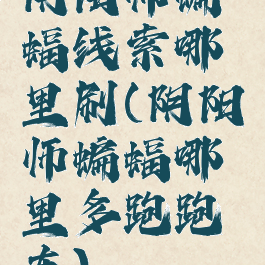 阴阳师蝙
蝠线索哪
里刷(阴阳
师蝙蝠哪
里多跑跑